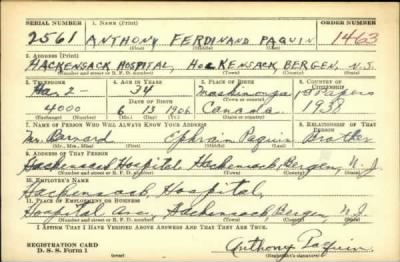 SERIAL NUMBER 1. NAME (Print) ORDER NUMBER
2561 ANTHONY FERDINAND PAQUIN 1463
(First) (Middle) (Last)
2. ADDRESS (Print)
HACKENSACK HOSPITAL, HACKENSACK, BERGEN, N.J.
(Number and street or R. F. D. number) (Town) (County) (State)
3. TELEPHONE 4. AGE IN YEARS 5. PLACE OF BIRTH 6. COUNTRY OF CITIZENSHIP
Hac. 2- 34
DATE OF BIRTH
4000 6 13 1906 Canada 1938
(Exchange) (Number) (Mo.) (Day) (Yr.) (State or country)
7. NAME OF PERSON WHO WILL ALWAYS KNOW YOUR ADDRESS 8. RELATIONSHIP OF THAT PERSON
Mr. Barnard Ephraim Paquin Brother
(Mr., Mrs., Miss) (First) (Middle) (Last)
9. ADDRESS OF THAT PERSON
Hackensack Hospital Hackensack, Bergen, N.J.
(Number and street or R. F. D. number) (Town) (County) (State)
10. EMPLOYER'S NAME
Hackensack, Hospital,
11. PLACE OF EMPLOYMENT OR BUSINESS
Hospital Ave., Hackensack, Bergen N.J.
(Number and street or R. F. D. number) (Town) (County) (State)
I AFFIRM THAT I HAVE VERIFIED ABOVE ANSWERS AND THAT THEY ARE TRUE.
REGISTRATION CARD
D. S. S. Form 1
Anthony Paquin
(Registrant's signature)